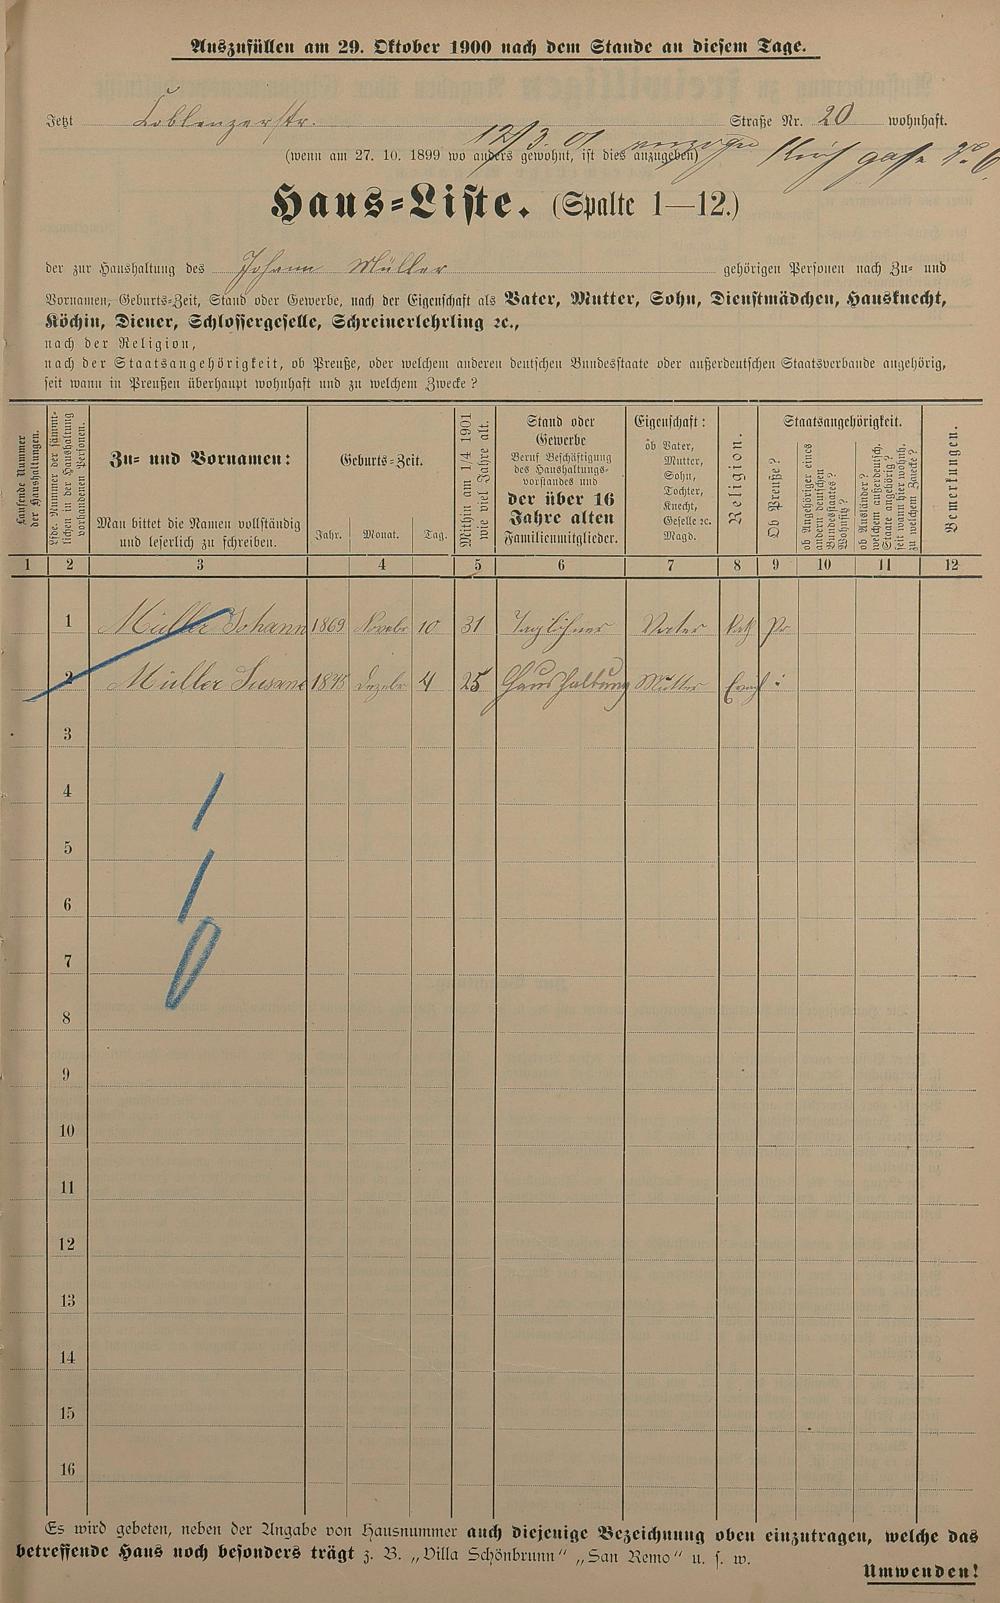 Auszufüllen am 29. Oktober 1900 nach dem Stande an diesem Tage.
Jetzt Coblenzerstr. Straße Nr. 20 wohnhaft.
12/3. 01 verzogen Kirchgasse No 6.
(wenn am 27. 10. 1899 wo anders gewohnt, ist dies anzugeben)
Haus=Liste. (Spalte 1—12.)
der zur Haushaltung des Johann Müller gehörigen Personen nach Zu- und
Vornamen, Geburts-Zeit, Stand oder Gewerbe, nach der Eigenschaft als Vater, Mutter, Sohn, Dienstmädchen, Hausknecht,
Köchin, Diener, Schlossergeselle, Schreinerlehrling ꝛc.,
nach der Religion,
nach der Staatsangehörigkeit, ob Preuße, oder welchem anderen deutschen Bundesstaate oder außerdeutschen Staatsverbande angehörig,
seit wann in Preußen überhaupt wohnhaft und zu welchem Zwecke?
Laufende Nummer
der Haushaltungen.
Lfde. Nummer der sämmt-
lichen in der Haushaltung
vorhandenen Personen.
Zu- und Vornamen:
Man bittet die Namen vollständig
und leserlich zu schreiben.
Geburts-Zeit.
Jahr. Monat. Tag.
Mithin am 1/4 1901
wie viel Jahre alt.
Stand oder
Gewerbe
Beruf Beschäftigung
des Haushaltungs-
vorstandes und
der über 16
Jahre alten
Familienmitglieder.
Eigenschaft:
ob Vater,
Mutter,
Sohn,
Tochter,
Knecht,
Geselle ꝛc.
Magd.
Religion.
Staatsangehörigkeit.
Ob Preuße?
ob Angehöriger eines
andern deutschen
Bundesstaates?
Wohnsitz?
ob Ausländer?
welchem außerdeutsch.
Staate angehörig?
seit wann hier wohnh.
zu welchem Zwecke?
Bemerkungen.
1 2 3 4 5 6 7 8 9 10 11 12
1 Müller Johann 1869 Novebr 10 31 Taglöhner Vater Kath Pr
2 Müller Susane 1875 Dezebr 4 25 Haushaltung Mutter Evagl :
3
4
5
6
7
8
9
10
11
12
13
14
15
16
Es wird gebeten, neben der Angabe von Hausnummer auch diejenige Bezeichnung oben einzutragen, welche das
betreffende Haus noch besonders trägt z. B. „Villa Schönbrunn“ „San Remo“ u. s. w.
Umwenden!